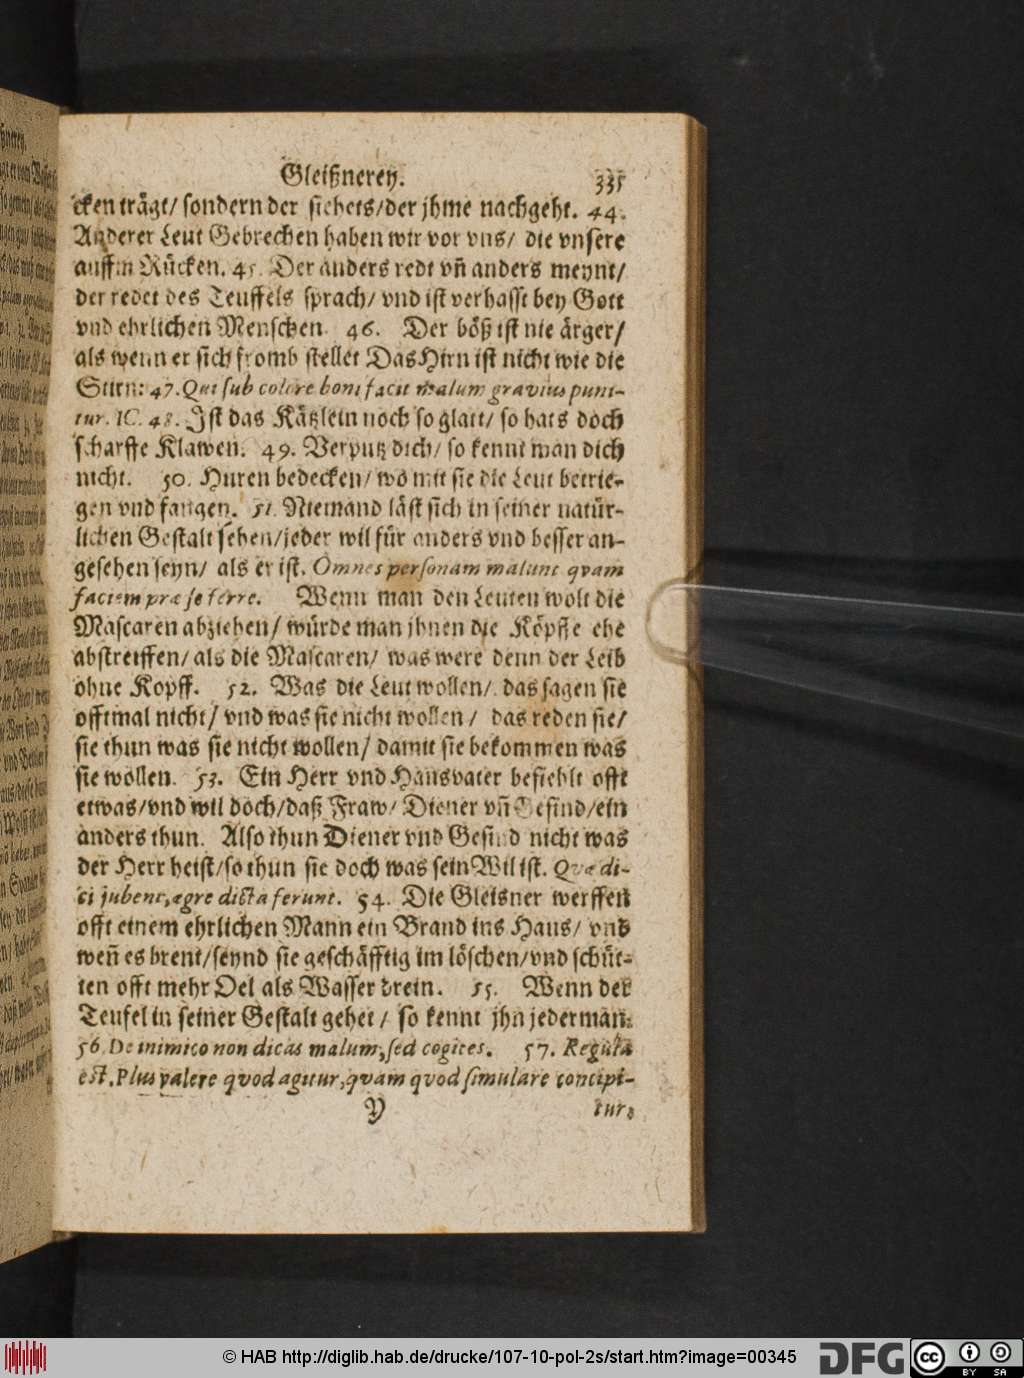 Gleißnerey. 335
cken trägt/ sondern der siehets/der jhme nachgeht. 44.
Anderer Leut Gebrechen haben wir vor vns/ die vnsere
auffm Rücken. 45. Der anders redt vñ anders meynt/
der redet des Teuffels sprach/ vnd ist verhasst bey Gott
vnd ehrlichen Menschen. 46. Der böß ist nie ärger/
als wenn er sich fromb stellet Das Hirn ist nicht wie die
Stirn: 47. Qui sub colore boni facit malum gravius puni-
tur. IC. 48. Ist das Kätzlein noch so glatt/ so hats doch
scharffe Klawen. 49. Verputz dich/ so kennt man dich
nicht. 50. Huren bedecken/ wo mit sie die Leut betrie-
gen vnd fangen. 51. Niemand läst sich in seiner natür-
lichen Gestalt sehen/jeder wil für anders vnd besser an-
gesehen seyn/ als er ist. Omnes personam malunt qvam
faciem præ se ferre. Wenn man den Leuten wolt die
Mascaren abziehen/ würde man jhnen die Köpffe ehe
abstreiffen/ als die Mascaren/ was were denn der Leib
ohne Kopff. 52. Was die Leut wollen/ das sagen sie
offtmal nicht/ vnd was sie nicht wollen/ das reden sie/
sie thun was sie nicht wollen/ damit sie bekommen was
sie wollen. 53. Ein Herr vnd Hausvater befiehlt offt
etwas/vnd wil doch/daß Fraw/ Diener vñ Gesind/ein
anders thun. Also thun Diener vnd Gesind nicht was
der Herr heist/so thun sie doch was sein Wil ist. Qvæ di-
ci jubent, ægre dicta ferunt. 54. Die Gleisner werffen
offt einem ehrlichen Mann ein Brand ins Haus/ vnd
weñ es brent/seynd sie geschäfftig im löschen/vnd schüt-
ten offt mehr Oel als Wasser drein. 55. Wenn der
Teufel in seiner Gestalt gehet/ so kennt jhn jederman.
56. De inimico non dicas malum, sed cogites. 57. Regula
est, Plus valere qvod agitur, qvam qvod simulare concipi-
Y tur.
© HAB http://diglib.hab.de/drucke/107-10-pol-2s/start.htm?image=00345
DFG
cc
BY SA